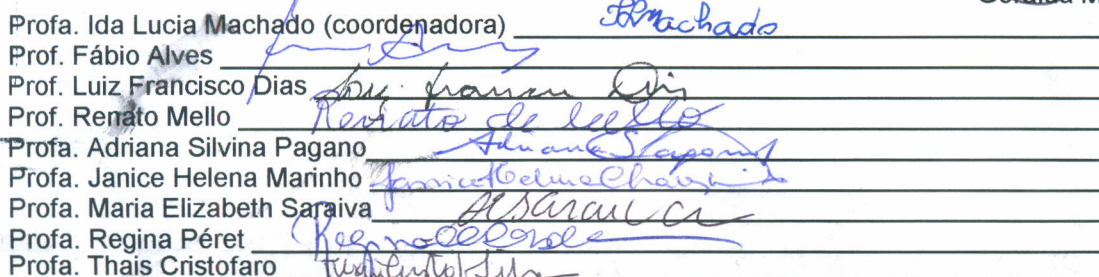 Profa. Ida Lucia Machado (coordenadora) IdMachado
Prof. Fábio Alves
Prof. Luiz Francisco Dias Luiz Francisco Dias
Prof. Renato Mello Renato de Mello
Profa. Adriana Silvina Pagano Adriana S Pagano
Profa. Janice Helena Marinho Janice Helena Chaves Marinho
Profa. Maria Elizabeth Saraiva
Profa. Regina Péret
Profa. Thais Cristofaro